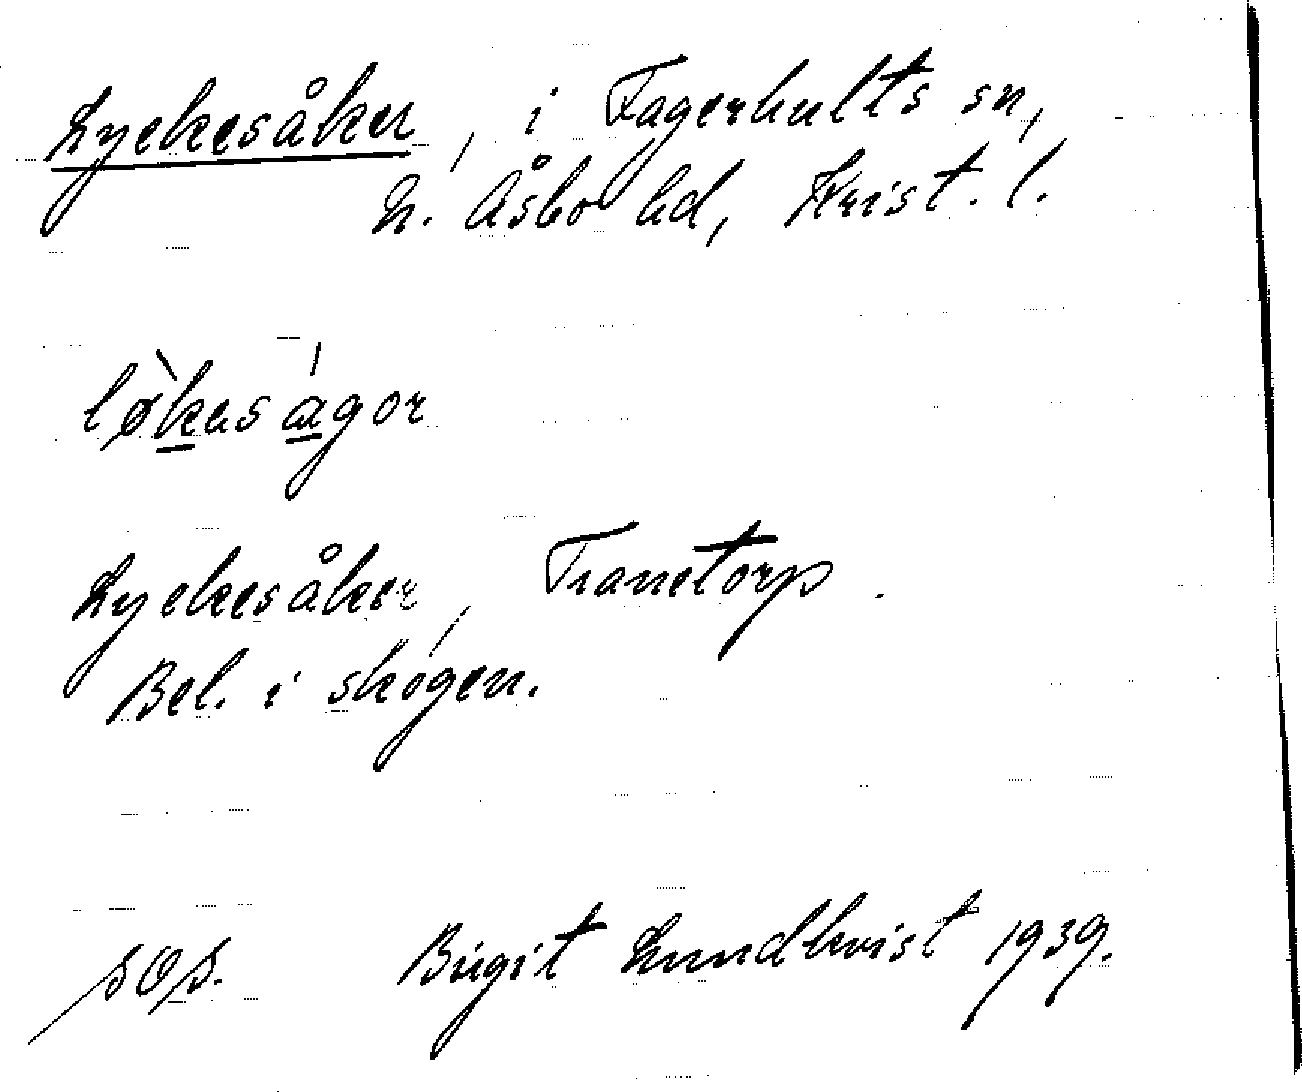 Lyckesåker, i Fagerhults sn,
N. Åsbo hd, Krist. l.
lø̀kaságor
Lyckesåker, Tranetorp.
Bel. i skogen.
SOS. Birgit Lundkvist 1939.